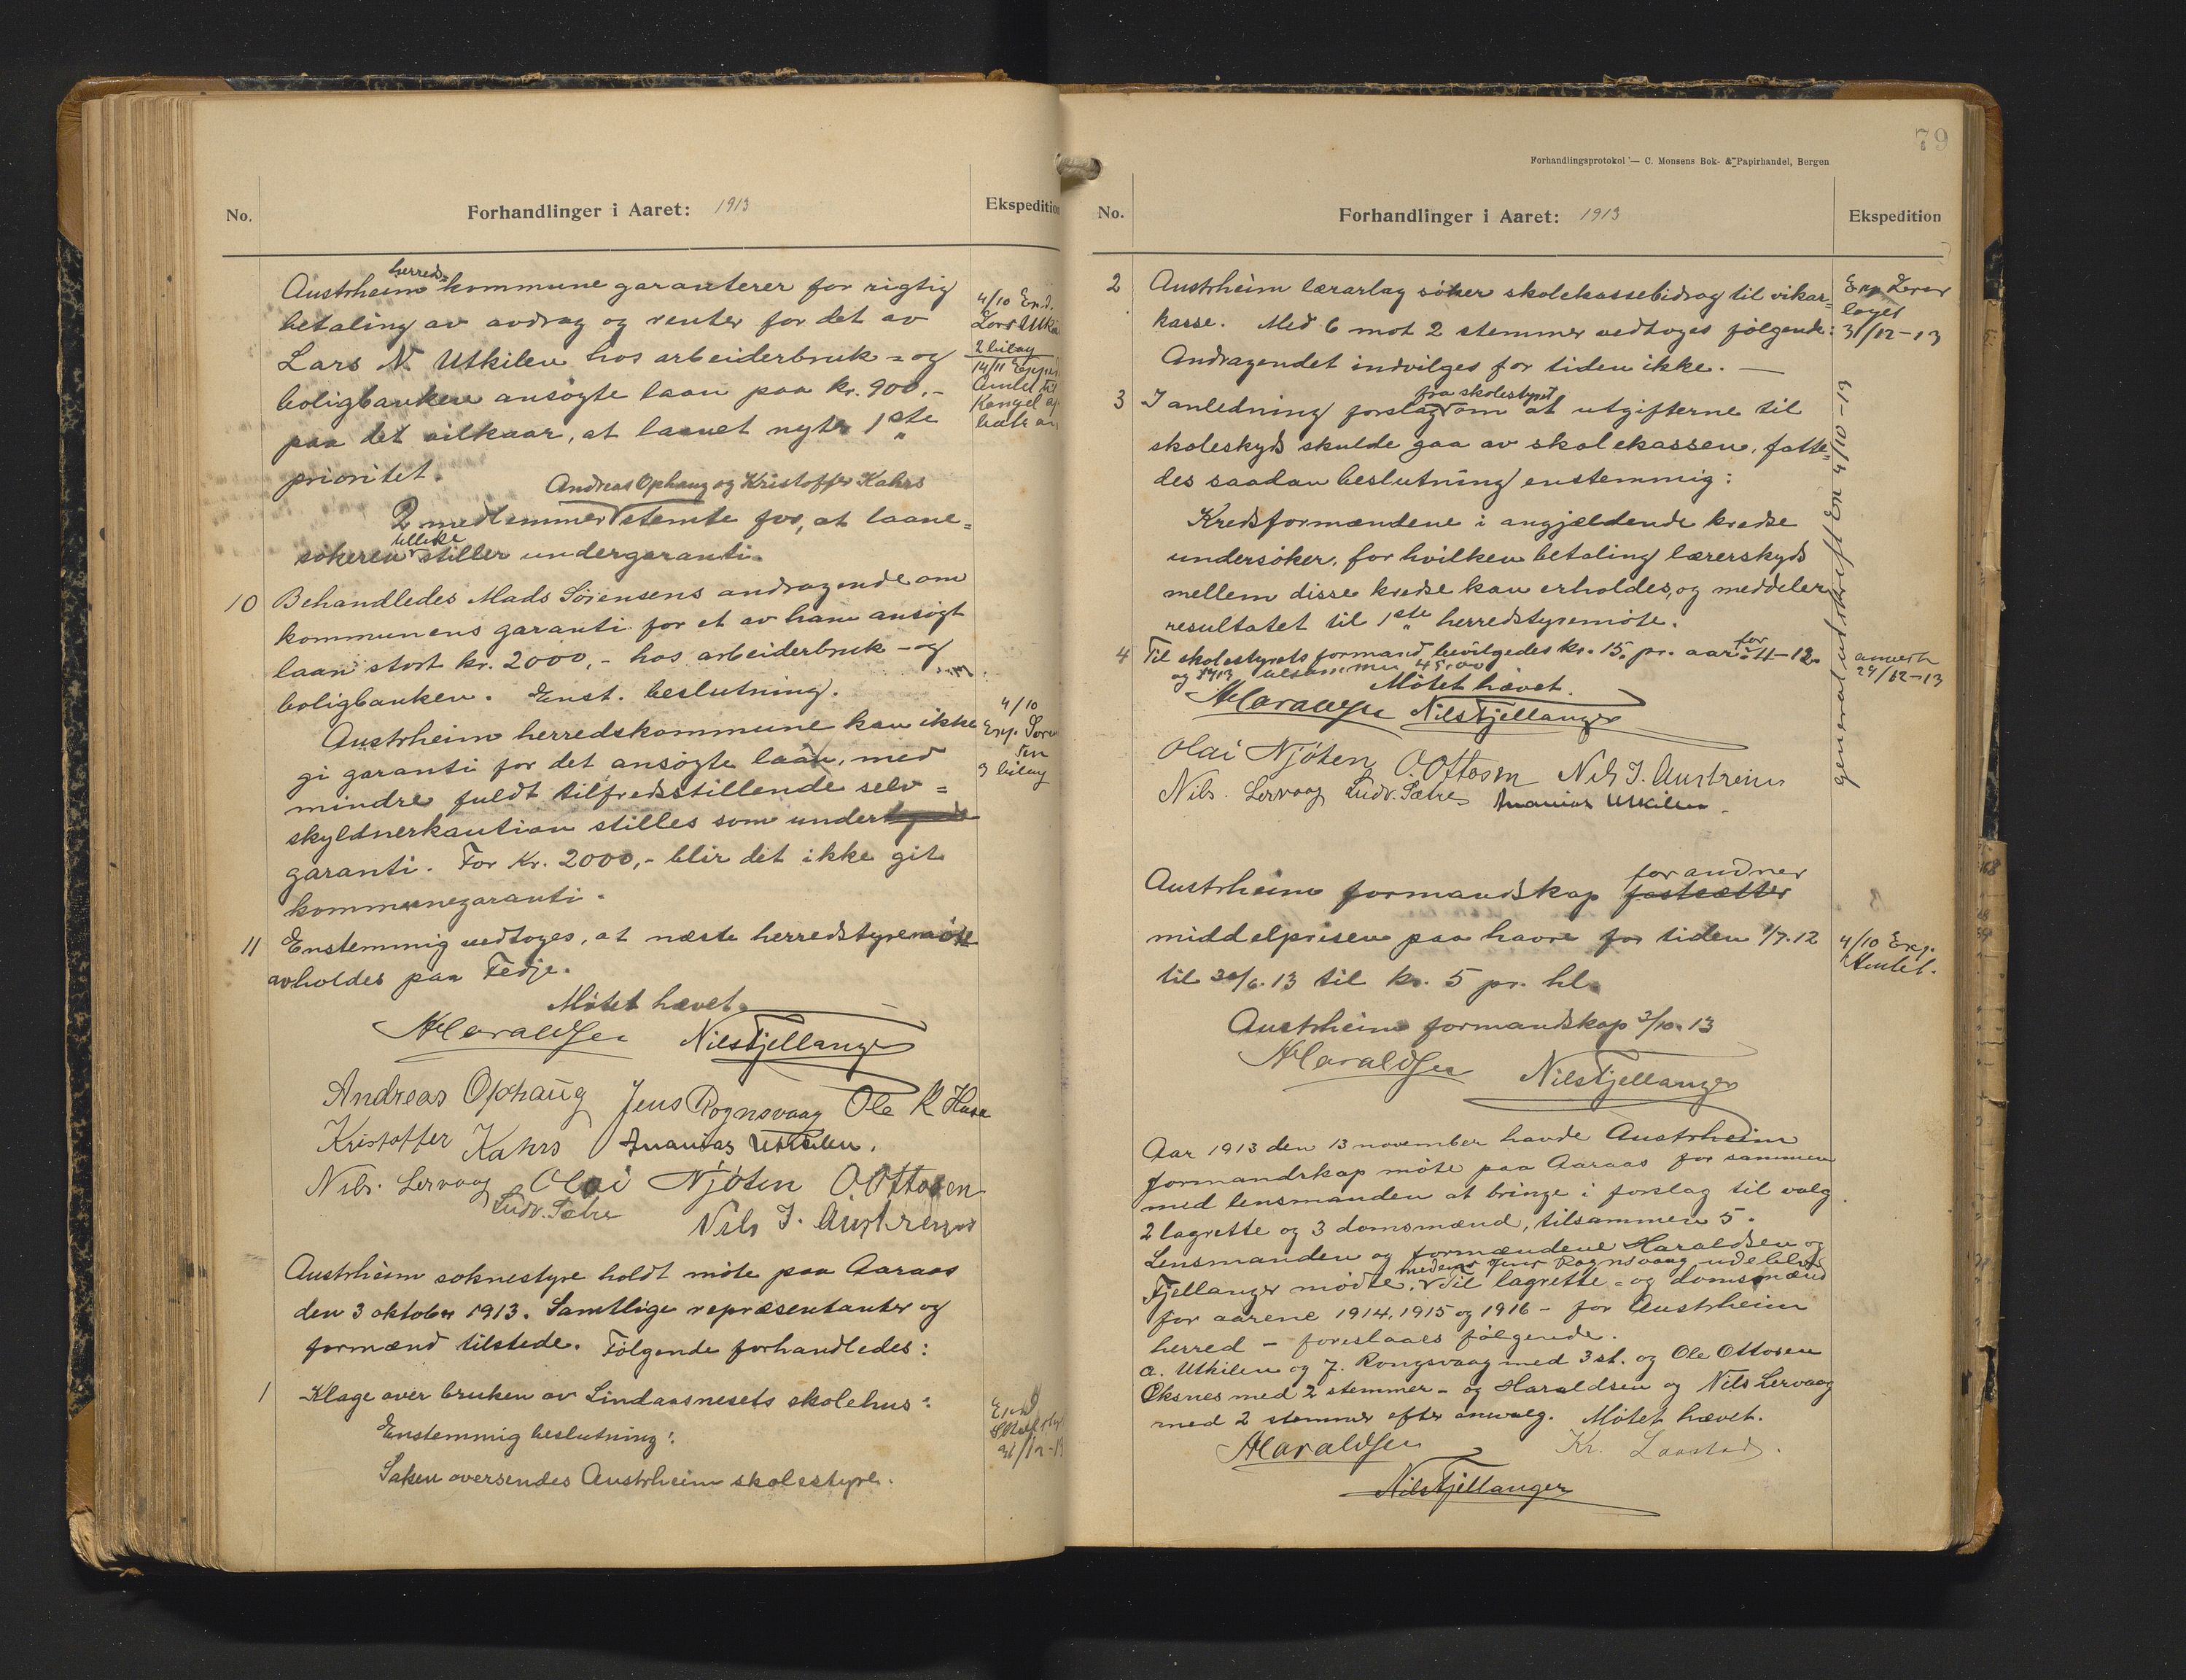 No.
Forhandlinger i Aaret: 1913
Ekspedition
Austrheim herreds= kommune garanterer for rigtig
betaling av avdrag og renter for det av
Lars N. Utkilen hos arbeiderbruk = og
boligbanken ansøgte laan paa kr. 900,-
paa det vilkaar, at laanet nyter 1ste
prioritet.
Andreas Ophaug og Kristoffer Kahrs
2 medlemmer stemte for, at laane=
søkeren tillike stiller undergaranti.
4/10
Lars
2 bilag
14/11
10 Behandledes Mads Sørensens andragende om
kommunens garanti for et av ham ansøgt
laan stort kr. 2000,- hos arbeiderbruk - og
boligbanken. Enst. beslutning.
Austrheim herredskommune kan ikke
gi garanti for det ansøgte laan, med
mindre fuldt tilfredsstillende selv=
skyldnerkaution stilles som under
garanti. For Kr. 2000,- blir det ikke git
kommunegaranti.
4/10
Exp. Søren
sen
3 bilag
11 Enstemmig vedtoges, at næste herredstyremøte
avholdes paa Fedje.
Møtet hævet.
AHaraldsen Nils Fjellanger
Andreas Ophaug Jens Rognsvaag Ole K Husa
Kristoffer Kahrs Ananias Utkilen.
Nils. Lervaag Olai Njøten O. Ottosen
Ludv. Sætre Nils J. Austreim
Austrheim soknestyre holdt møte paa Aaraas
den 3 oktober 1913. Samtlige repræsentanter og
formænd tilstede. Følgende forhandledes:
1 Klage over bruken av Lindaasnesets skolehus:
Enstemmig beslutning:
Saken oversendes Austrheim skolestyre.
79
Forhandlingsprotokol — C. Monsens Bok- & Papirhandel, Bergen
No.
Forhandlinger i Aaret: 1913
Ekspedition
2 Austrheim lærarlag søker skolekassebidrag til vikar=
kasse. Med 6 mot 2 stemmer vedtoges følgende:
Andragendet indvilges for tiden ikke. —
Exp Lærar
laget
31/12-13
3 I anledning forslag fra skolestyret om at utgifterne til
skoleskyds skulde gaa av skolekassen, fatte=
des saadan beslutning enstemmig:
Kredsformændene i angjældende kredse
undersøker, for hvilken betaling lærerskyds
mellem disse kredse kan erholdes, og meddeler
resultatet til 1ste herredstyremøte.
4 Til skolestyrets formand bevilgedes kr. 15. pr. aar for 11-12.
og 1913 tilsammen 45,00
Møtet hævet.
29/12-13
general utskrift 4/10-13
AHaraldsen Nils Fjellanger
Olai Njøten O. Ottosen Nils J. Austreim
Nils. Lervaag Ludv. Sætre Ananias Utkilen.
Austrheim formandskap fastsætter forandrer
middelprisen paa havre for tiden 1/7.12
til 30/6.13 til kr. 5 pr. hl.
4/10 Exp.
Amtet.
Austrheim formandskap 3/10.13
AHaraldsen
Nils Fjellanger
Aar 1913 den 13 november havde Austrheim
formandskap møte paa Aaraas for sammen
med lensmanden at bringe i forslag til valg
2 lagrette og 3 domsmænd, tilsammen 5.
Lensmanden og formændene Haraldsen og
Fjellanger mødte. medens Jens Rognsvaag udeblev. Til lagrette - og domsmænd
for aarene 1914, 1915 og 1916 - for Austrheim
herred - foreslaaes følgende.
A. Utkilen og J. Rongsvaag med 3 st. og Ole Ottosen
Øksnes med 2 stemmer - og Haraldsen og Nils Lervaag
med 2 stemmer efter omvalg. Møtet hævet.
AHaraldsen Kr. Laastad.
Nils Fjellanger